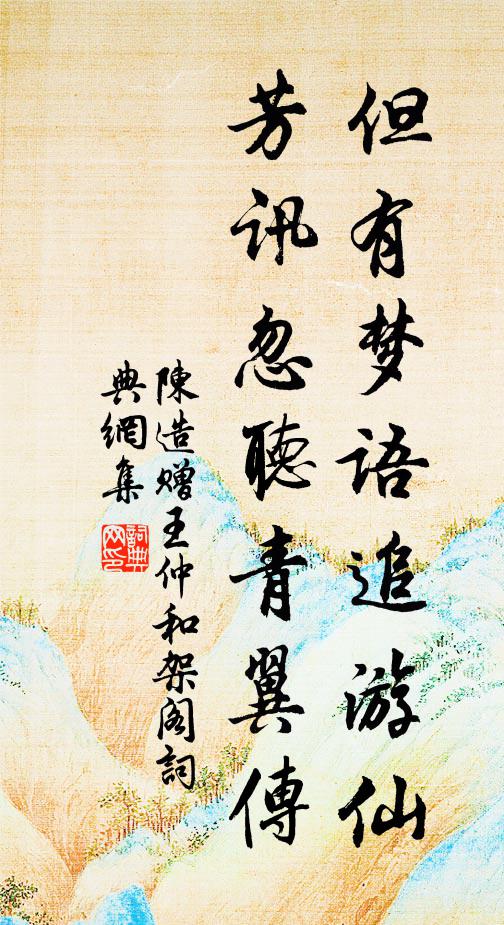 但有梦语追游仙
芳讯忽聽青翼傳
陳造赠王仲和架阁詞
典網集
詞典网印